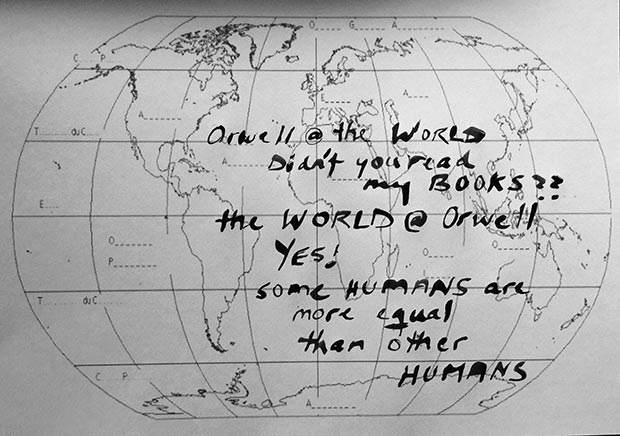 O_____ G_____ A________
C.....P.....
E_____
A_____
A_____
T........duC.....
A________
Orwell @ the WORLD
Didn't you read
my BOOKS??
the WORLD @ Orwell
YES!
some HUMANS are
more equal
than other
HUMANS
E......
O______
P________
O____
T........duC.....
C.....P.....
A_________